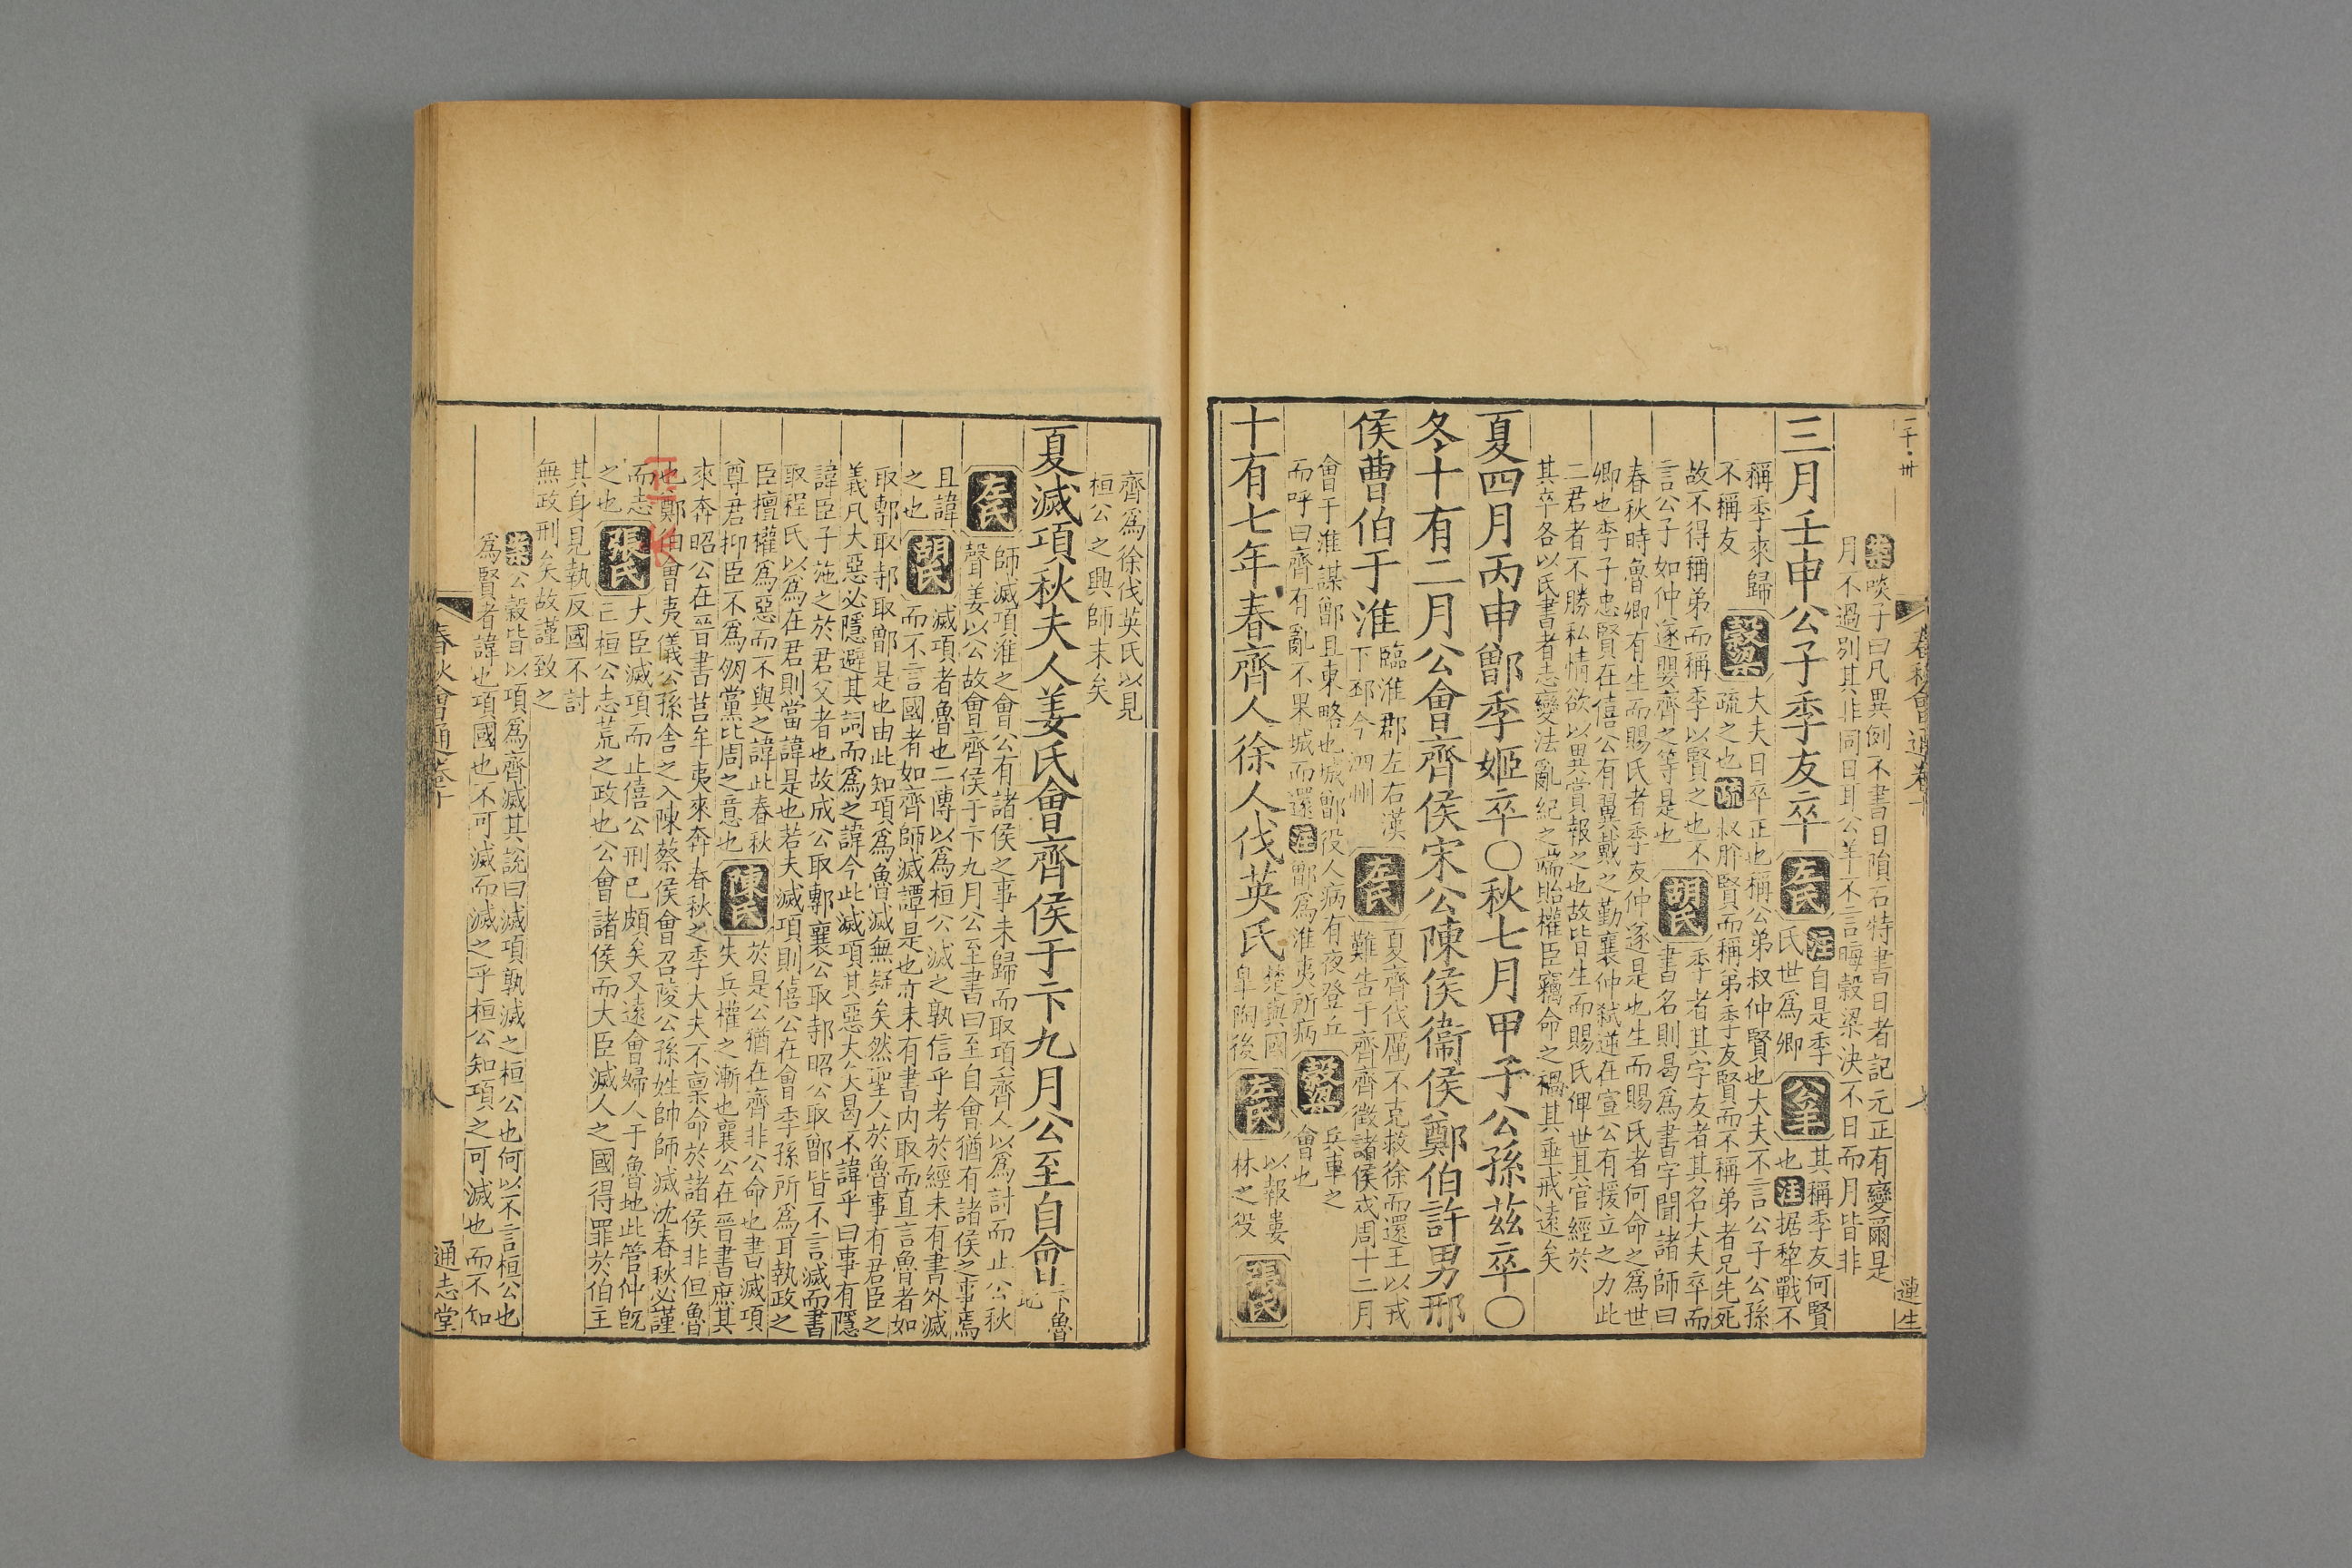 春秋會通卷十
蓮生
葉啖子曰凡異例不書日隕石特書日者記元正有變爾是
月不過別其非同日耳公羊不言晦穀梁決不日而月皆非
三月壬申公子季友卒
左氏
注自是季
氏世爲卿
公羊
其稱季友何賢
也注据犂戰不
稱季來歸
不稱友
穀梁
大夫日卒正也稱公弟叔仲賢也大夫不言公子公孫
疏之也疏叔肸賢而稱弟季友賢而不稱弟者兄先死
故不得稱弟而稱季以賢之也不
言公子如仲遂嬰齊之等是也
胡氏
季者其字友者其名大夫卒而
書名則曷爲書字聞諸師曰
春秋時魯卿有生而賜氏者季友仲遂是也生而賜氏者何命之爲世
卿也季子忠賢在僖公有翼戴之勤襄仲弑逆在宣公有援立之力此
二君者不勝私情欲以異賞報之也故皆生而賜氏俾世其官經於
其卒各以氏書者志變法亂紀之端貽權臣竊命之禍其垂戒遠矣
夏四月丙申鄫季姬卒〇秋七月甲子公孫茲卒〇
冬十有二月公會齊侯宋公陳侯衞侯鄭伯許男邢
侯曹伯于淮
臨淮郡左右漢
下邳今泗州
左氏
夏齊伐厲不克救徐而還王以戎
難告于齊齊徵諸侯戍周十二月
會于淮謀鄫且東略也城鄫役人病有夜登丘
而呼曰齊有亂不果城而還注鄫爲淮夷所病
穀梁
兵車之
會也
十有七年春齊人徐人伐英氏
楚與國
皐陶後
左氏
以報婁
林之役
張氏
齊爲徐伐英氏以見
桓公之興師末矣
夏滅項秋夫人姜氏會齊侯于卞九月公至自會
卞魯
地
左氏
師滅項淮之會公有諸侯之事未歸而取項齊人以爲討而止公秋
聲姜以公故會齊侯于卞九月公至書曰至自會猶有諸侯之事焉
且諱
之也
胡氏
滅項者魯也二傳以爲桓公滅之孰信乎考於經未有書外滅
而不言國者如齊師滅譚是也亦未有書内取而直言魯者如
取鄟取邿取鄫是也由此知項爲魯滅無疑矣然聖人於魯事有君臣之
義凡大惡必隱避其詞而爲之諱今此滅項其惡大矣曷不諱乎曰事有隱
諱臣子施之於君父者也故成公取鄟襄公取邿昭公取鄫皆不言滅而書
取程氏以爲在君則當諱是也若夫滅項則僖公在會季孫所爲耳執政之
臣擅權爲惡而不與之諱此春秋
尊君抑臣不爲朋黨比周之意也
陳氏
於是公猶在齊非公命也書滅項
失兵權之漸也襄公在晉書庶其
來奔昭公在晉書莒牟夷來奔春秋之季大夫不禀命於諸侯非但魯
也鄭由會夷儀公孫舍之入陳蔡侯會召陵公孫姓帥師滅沈春秋必謹
而志
之也
張氏
大臣滅項而止僖公刑已頗矣又遠會婦人于魯地此管仲旣
亡桓公志荒之政也公會諸侯而大臣滅人之國得罪於伯主
其身見執反國不討
無政刑矣故謹致之
葉公穀皆以項爲齊滅其說曰滅項孰滅之桓公也何以不言桓公也
爲賢者諱也項國也不可滅而滅之乎桓公知項之可滅也而不知
春秋會通卷十
八
通志堂